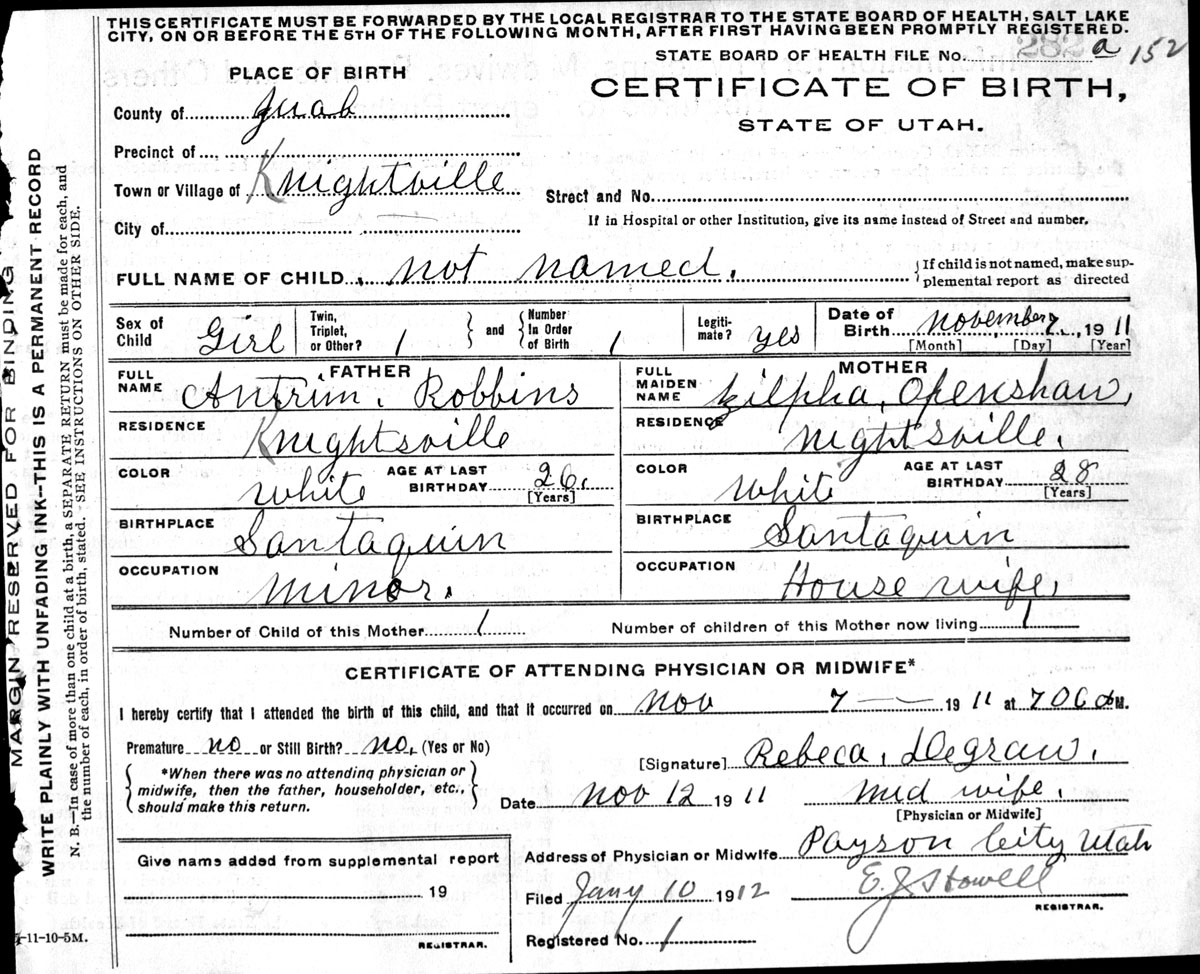 THIS CERTIFICATE MUST BE FORWARDED BY THE LOCAL REGISTRAR TO THE STATE BOARD OF HEALTH, SALT LAKE
CITY, ON OR BEFORE THE 5TH OF THE FOLLOWING MONTH, AFTER FIRST HAVING BEEN PROMPTLY REGISTERED.
STATE BOARD OF HEALTH FILE No. 282 a 152
PLACE OF BIRTH
CERTIFICATE OF BIRTH,
STATE OF UTAH.
County of Juab
Precinct of
Town or Village of Knightville
Street and No.
City of
If in Hospital or other Institution, give its name instead of Street and number.
FULL NAME OF CHILD not named.
{If child is not named, make sup-
plemental report as directed
Sex of Child Girl
Twin, Triplet, or Other? 1 } and { Number In Order of Birth 1
Legiti-mate? yes
Date of Birth November 7, 1911
[Month] [Day] [Year]
FATHER
FULL NAME Antrim. Robbins
MOTHER
FULL MAIDEN NAME Zilpha, Openshaw,
RESIDENCE Knightsville
RESIDENCE nightsville.
COLOR White AGE AT LAST BIRTHDAY 26. [Years]
COLOR White AGE AT LAST BIRTHDAY 28 [Years]
BIRTHPLACE Santaquin
BIRTHPLACE Santaquin
OCCUPATION Minor.
OCCUPATION House wife.
Number of Child of this Mother 1 Number of children of this Mother now living 1
CERTIFICATE OF ATTENDING PHYSICIAN OR MIDWIFE*
I hereby certify that I attended the birth of this child, and that it occurred on Nov 7 — 1911 at 706 a M.
Premature no or Still Birth? no. (Yes or No)
[Signature] Rebeca, Degraw.
{*When there was no attending physician or
midwife, then the father, householder, etc.,
should make this return.}
Date Nov 12 1911 Mid wife.
[Physician or Midwife]
Give name added from supplemental report
19
REGISTRAR.
Address of Physician or Midwife Payson City Utah
Filed Jany 10 1912 E. J. Howell
REGISTRAR.
Registered No. 1
-11-10-5M.
MARGIN RESERVED FOR BINDING
WRITE PLAINLY WITH UNFADING INK--THIS IS A PERMANENT RECORD
N. B.—In case of more than one child at a birth, a SEPARATE RETURN must be made for each, and
the number of each, in order of birth, stated. SEE INSTRUCTIONS ON OTHER SIDE.